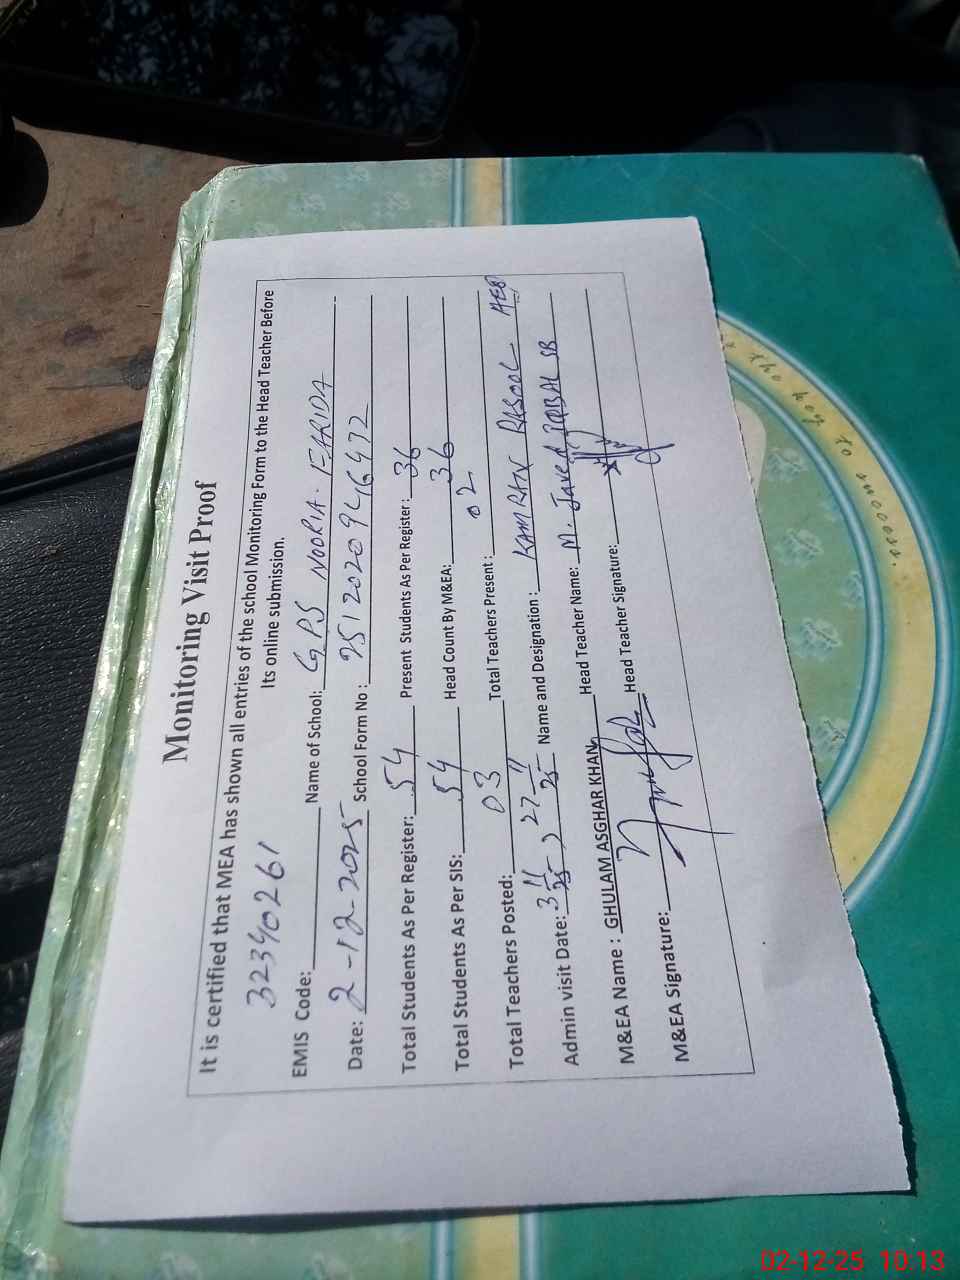 Monitoring Visit Proof
It is certified that MEA has shown all entries of the school Monitoring Form to the Head Teacher Before
Its online submission.
EMIS Code: 32340261 Name of School: GPS NOORIA FARIDA
Date: 2-12-2025 School Form No: 2512020946432
Total Students As Per Register: 54 Present Students As Per Register: 36
Total Students As Per SIS: 54 Head Count By M&EA: 36
Total Teachers Posted: 03 Total Teachers Present: 02
Admin visit Date: 3 11/25, 27 11/25 Name and Designation: KAMRAN RASOOL AEO
M&EA Name : GHULAM ASGHAR KHAN Head Teacher Name: M. Javed IQBAL SB
M&EA Signature: Head Teacher Signature:
02-12-25 10:13